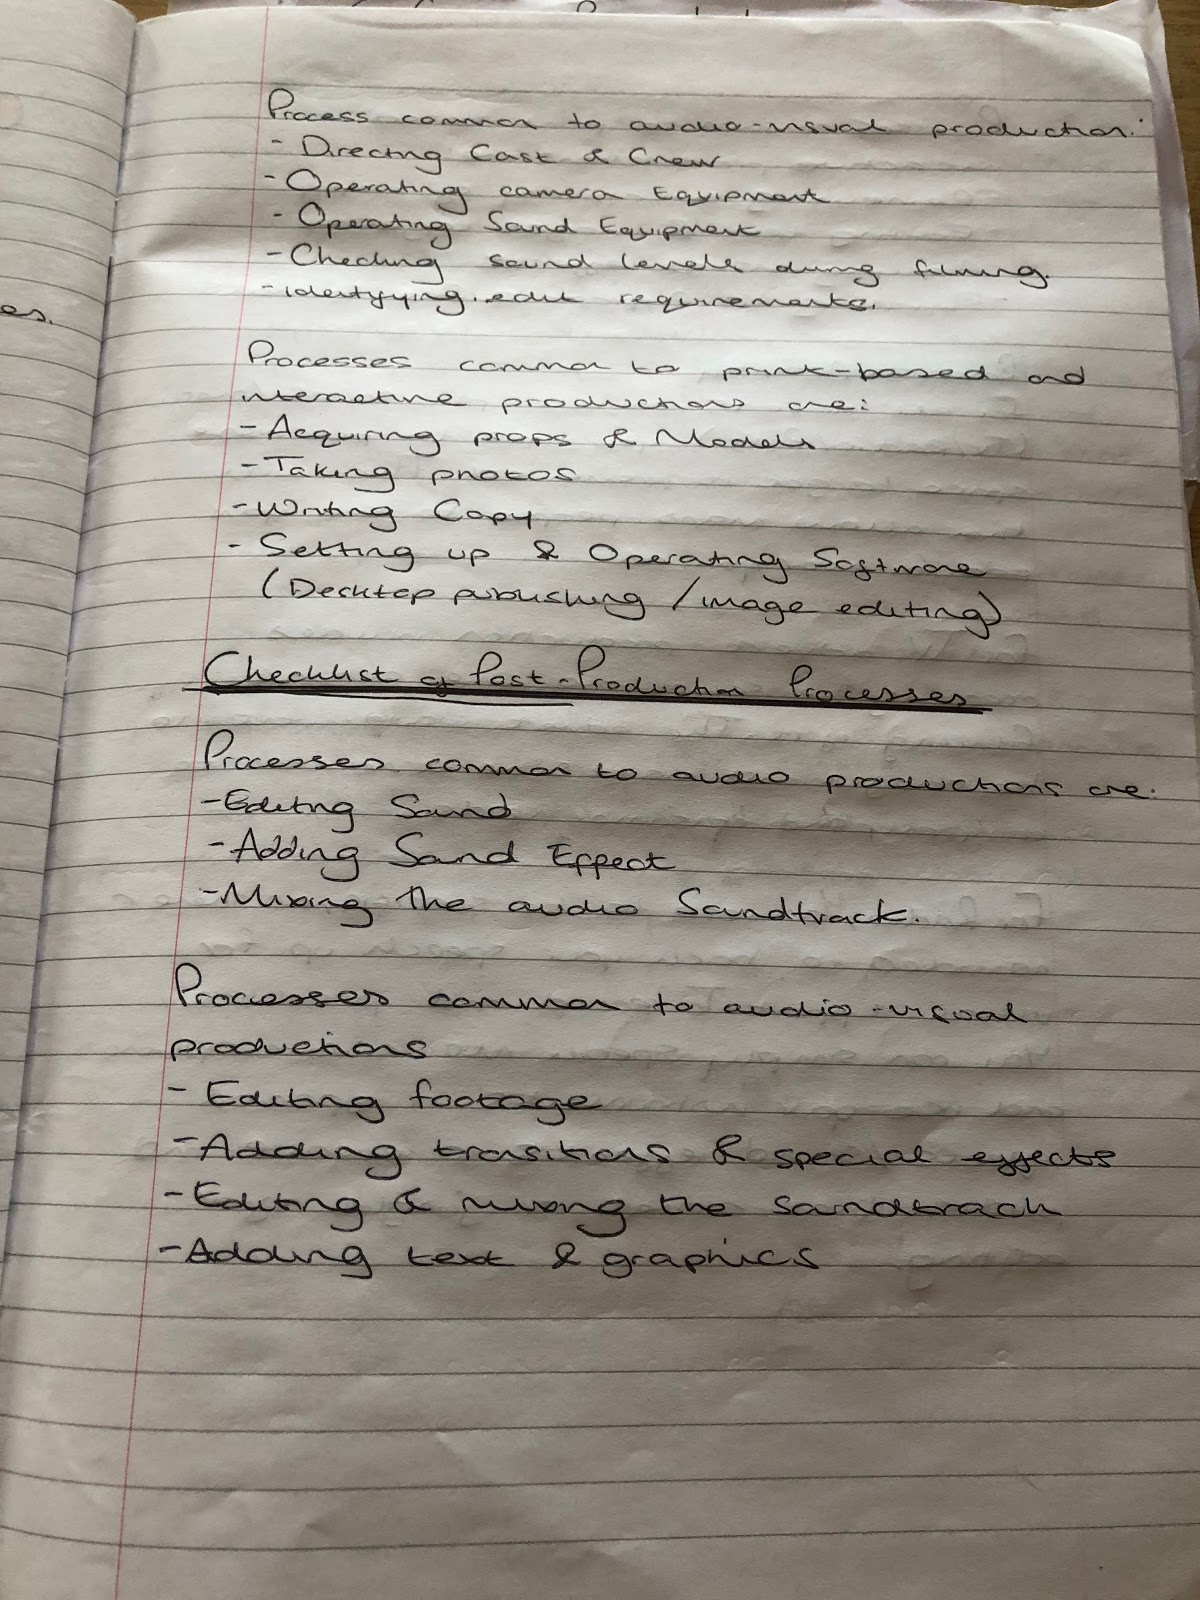 Process common to audio-visual production:
- Directing Cast & Crew
- Operating camera Equipment
- Operating Sound Equipment
- Checking sound levels during filming.
- identifying edit requirements.
es.
Processes common to print-based and
interactive productions are:
- Acquiring props & Models
- Taking photos
- Writing Copy
- Setting up & Operating Software
(Decktop publishing / image editing)
Checklist of Post-Production Processes
Processes common to audio productions are:
- Editing Sound
- Adding Sound Effect
- Mixing the audio Soundtrack.
Processes common to audio-visual
productions
- Editing footage
- Adding transitions & special effects
- Editing & mixing the soundtrack
- Adding text & graphics